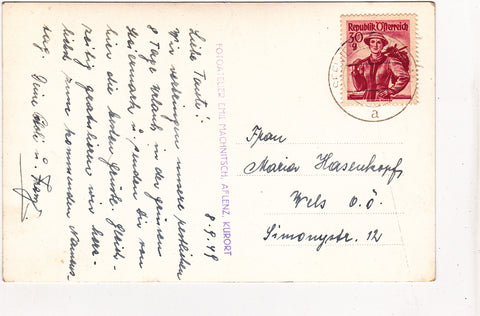 8.9.49
Liebe Tante!
Wir verbringen unsere restlichen
8 Tage Urlaub in der grünen
Steiermark u. senden Dir von
hier die besten Grüße. Gleich-
zeitig gratulieren wir herz-
lichst zum kommenden Namens-
tag. Deine u. Franz
FOTOATELIER EMIL MACHNITSCH, AFLENZ, KURORT
Republik Österreich
30
g
a
Frau
Maria Hasenkopf
Wels O.Ö.
Simonystr. 12